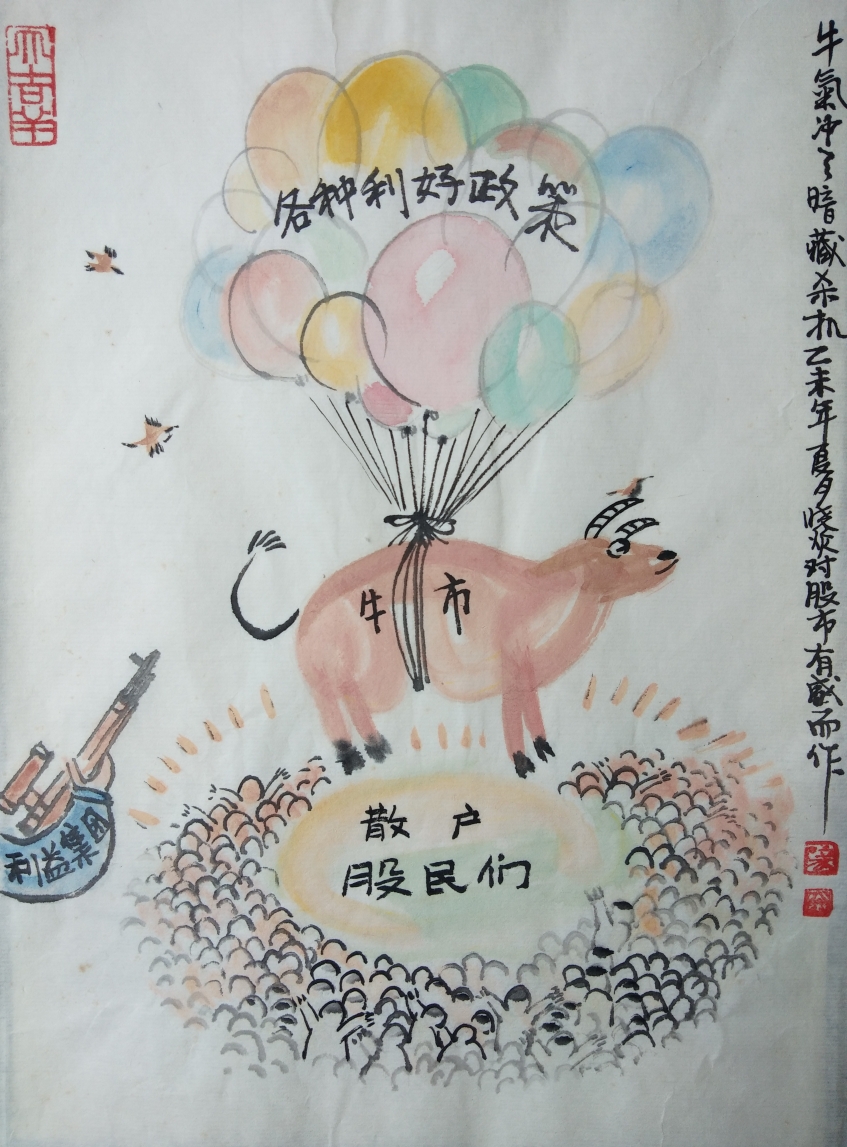 各种利好政策
牛市
利益集团
散户
股民们
牛氣冲冲暗藏杀机乙未年夏月晓欢对股市有感而作